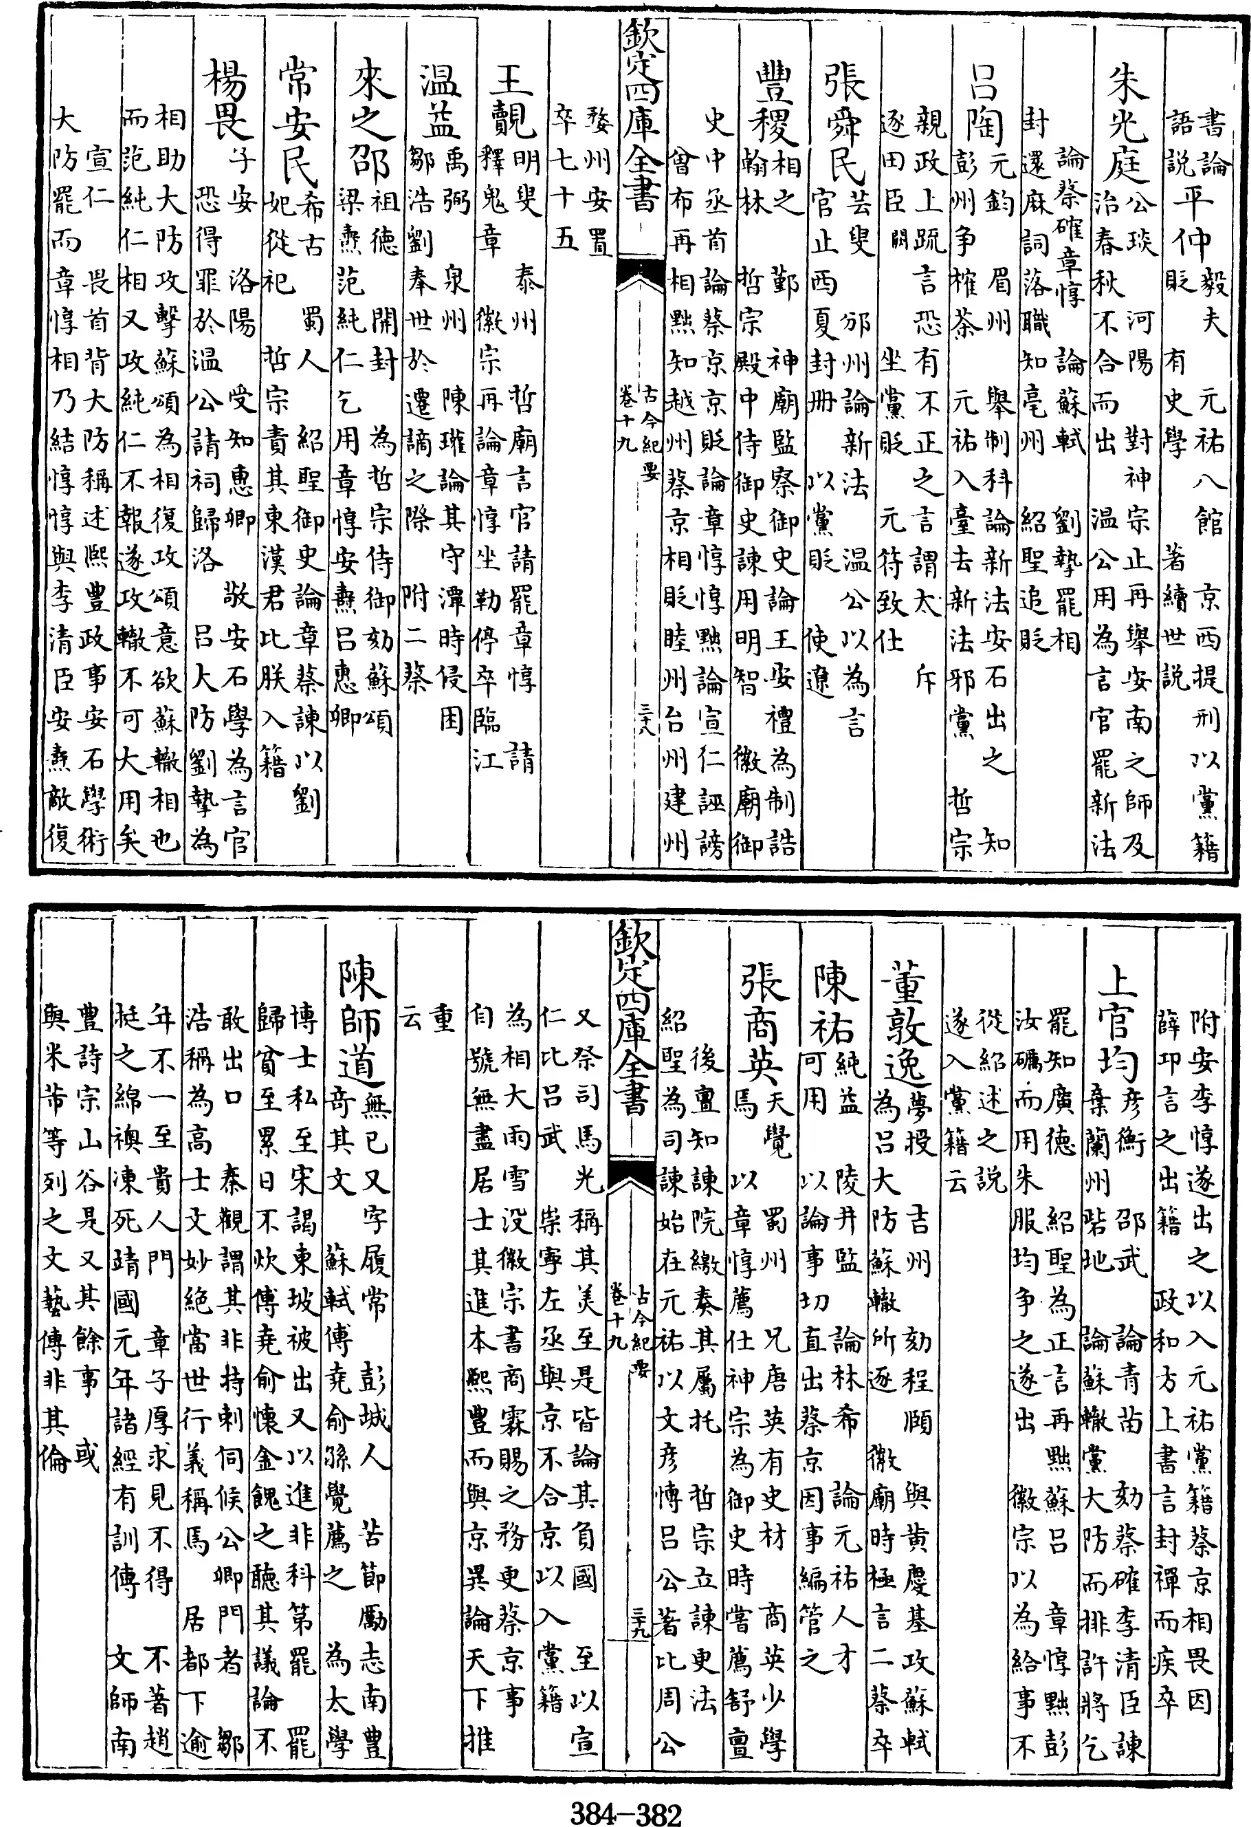 書論　毅夫　元祐八館　京西提刑以黨籍
語説平仲貶　有史學　著續世説
朱光庭
公琰　河陽　對神宗止再舉安南之師及
治春秋不合而出　温公用為言官罷新法
論蔡確章惇　論蘇軾　劉摯罷相
封還麻詞落職知亳州　紹聖追貶
呂陶
元鈞　眉州　舉制科論新法安石出之　知
彭州爭榷茶　元祐入臺去新法邪黨　哲宗
親政上疏言恐有不正之言謂太　斥
逐田臣闕　坐黨貶　元符致仕
張舜民
芸叟　邠州論新法　温公以為言
官止西夏封冊　以黨貶　使遼
豐稷
相之　鄞　神廟監察御史論王安禮為制誥
翰林　哲宗殿中侍御史諫用明智　徽廟御
史中丞首論蔡京京貶論章惇惇黜論宣仁誣謗
曾布再相黜知越州蔡京相貶睦州台州建州
欽定四庫全書
古今紀要
卷十九
三十八
婺州安置
卒七十五
王覿
明叟　泰州　哲廟言官請罷章惇　請
釋鬼章　徽宗再論章惇坐勒停卒臨江
温益
禹弼　泉州　陳瓘論其守潭時侵困
鄒浩劉奉世於遷謫之際　附二蔡
來之邵
祖德　開封　為哲宗侍御劾蘇頌
梁燾范純仁乞用章惇安燾呂惠卿
常安民
希古　蜀人　紹聖御史論章蔡諫以劉
妃從祀　哲宗責其東漢君比朕入籍
楊畏
子安　洛陽　受知惠卿　敬安石學為言官
恐得罪於温公請祠歸洛　呂大防劉摯為
相助大防攻擊蘇頌為相復攻頌意欲蘇轍相也
而范純仁相又攻純仁不報遂攻轍不可大用矣
宣仁　畏首背大防稱述熙豐政事安石學術
大防罷而章惇相乃結惇惇與李清臣安燾敵復
附安李惇遂出之以入元祐黨籍蔡京相畏因
薛卭言之出籍　政和方上書言封禪而疾卒
上官均
彥衡　邵武　論青苗　劾蔡確李清臣諫
棄蘭州砦地　論蘇轍黨大防而排許將乞
罷知廣德　紹聖為正言再黜蘇呂　章惇黜彭
汝礪而用朱服均爭之遂出　徽宗以為給事不
從紹述之説
遂入黨籍云
董敦逸
夢授　吉州　劾程頤　與黄慶基攻蘇軾
為呂大防蘇轍所逐　徽廟時極言二蔡卒
陳祐
純益　陵井監　論林希　論元祐人才
可用　以論事切直出蔡京因事編管之
張商英
天覺　蜀州　兄唐英有史材　商英少學
馬　以章惇薦仕神宗為御史時嘗薦舒亶
後亶知諫院繳奏其屬托　哲宗立諫更法
紹聖為司諫始在元祐以文彥博呂公著比周公
欽定四庫全書
古今紀要
卷十九
三十九
又祭司馬光稱其美至是皆論其負國　至以宣
仁比呂武　崇寧左丞與京不合京以入黨籍
為相大雨雪没徽宗書商霖賜之務更蔡京事
自號無盡居士其進本熙豐而與京異論天下推
重
云
陳師道
無已又字履常　彭城人　苦節勵志南豐
奇其文　蘇軾傅堯俞孫覺薦之　為太學
博士私至宋謁東坡被出又以進非科第罷　罷
歸貧至累日不炊傅堯俞懷金餽之聽其議論不
敢出口　秦觀謂其非持刺伺候公卿門者　鄒
浩稱為高士文妙絕當世行義稱馬　居都下逾
年不一至貴人門　章子厚求見不得　不著趙
挺之綿襖凍死靖國元年諸經有訓傳　文師南
豐詩宗山谷是又其餘事　或
與米芾等列之文藝傳非其倫
384-382